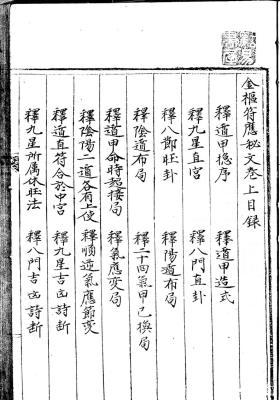 金樞符應秘文卷上目錄
釋遁甲總序 釋遁甲造式
釋九星直宮 釋八門直卦
釋八節旺卦 釋陽遁布局
釋陰遁布局 釋二十四氣甲己換局
釋遁甲命時超接局 釋氣應交局
釋陰陽二遁各有上使 釋順逆氣應節交
釋遁直符合於甲宮 釋九星吉凶詩斷
釋九星所属休旺法 釋八門吉凶詩斷